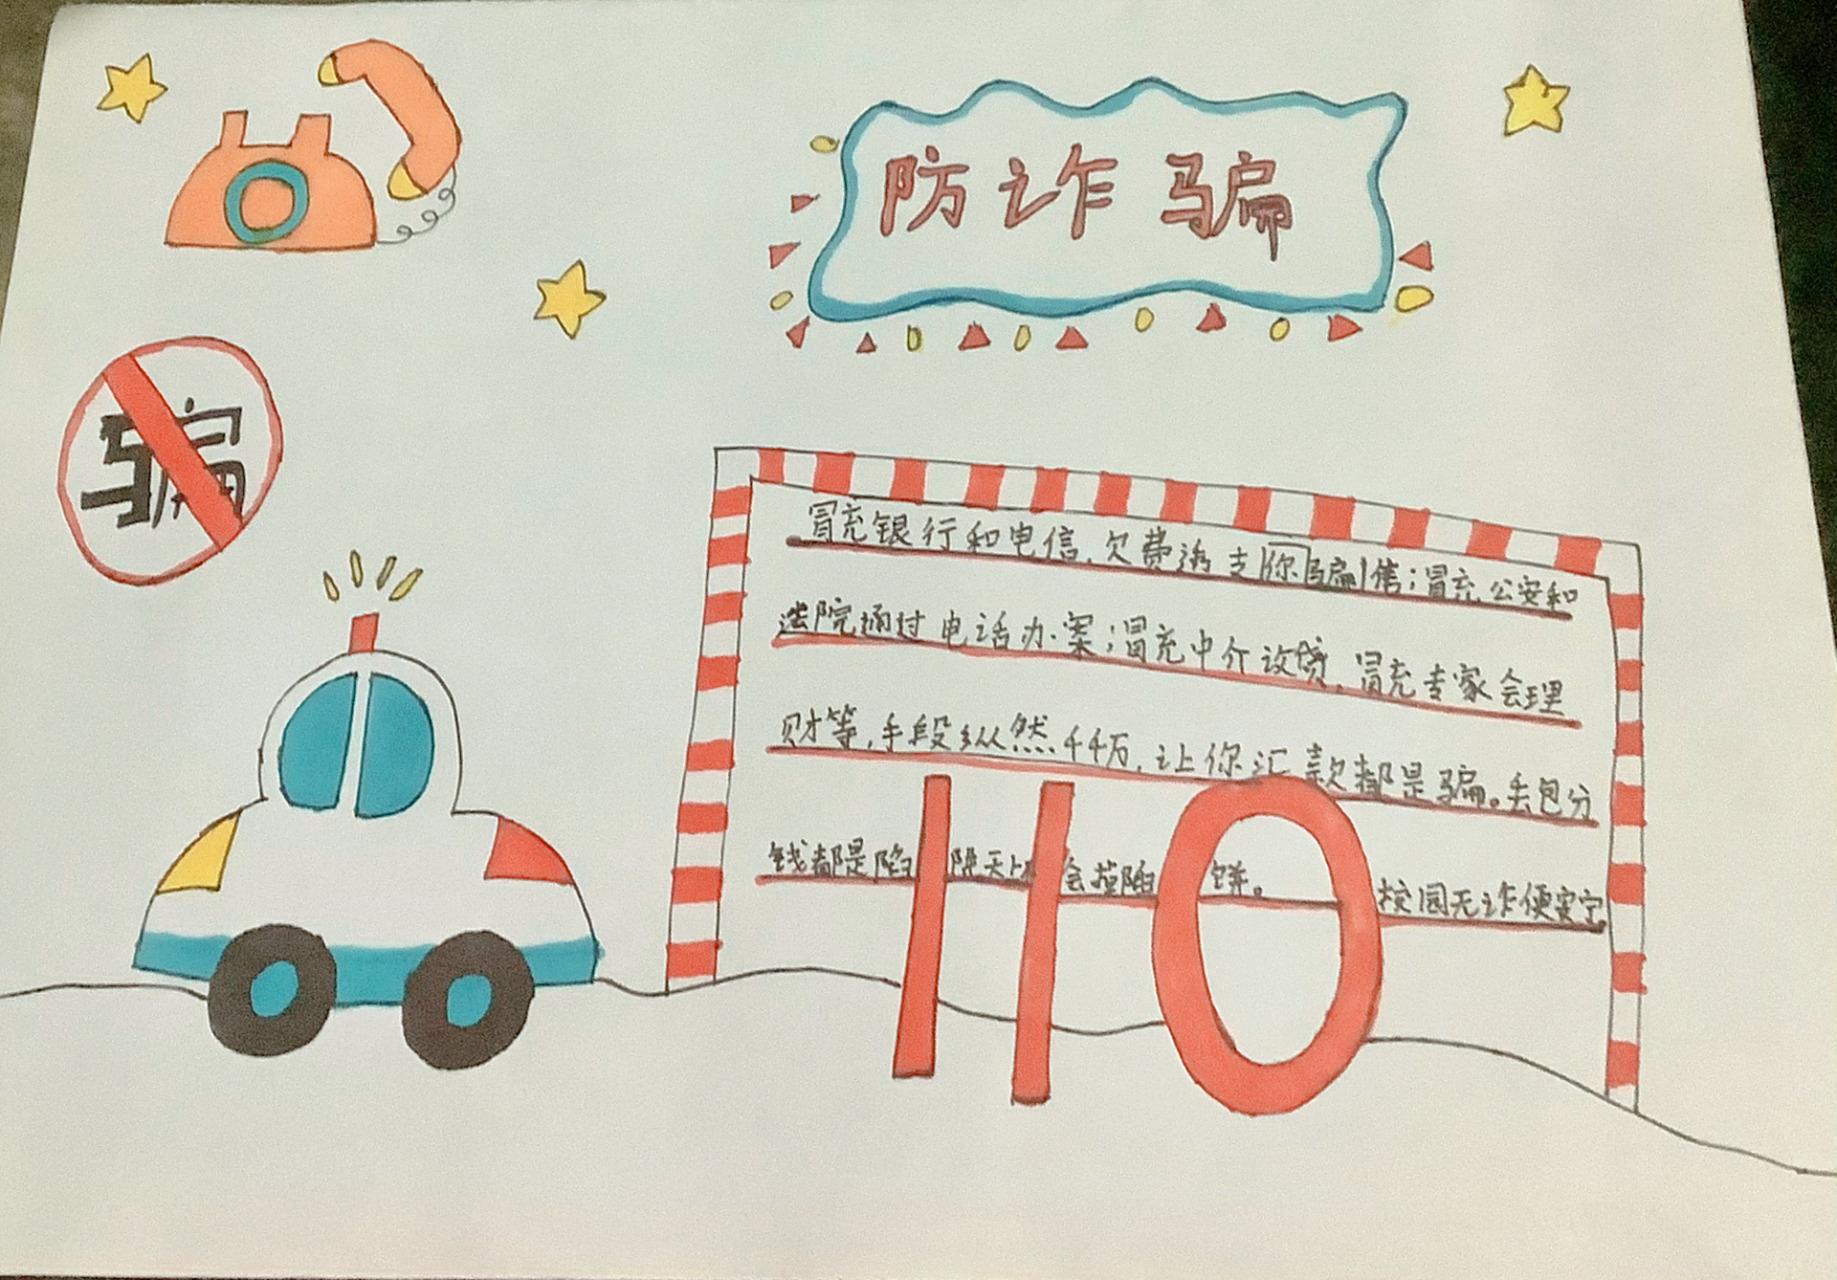 防诈骗
骗
冒充银行和电信,欠费透支你骗信;冒充公安和
法院通过电话办案;冒充中介设赁,冒充专家会理
财等,手段纵然千千万,让你汇款都是骗。丢包分
钱都是陷阱天上会掉陷饼。校园无诈便安宁
110